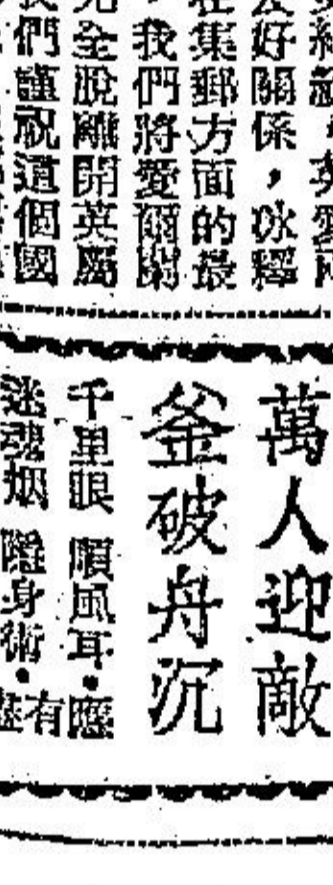 好關係，冰釋
集郵方面的最
我們將愛爾蘭
全脫離開英屬
們謹祝這個國
萬人迎敵
釜破舟沉
千里眼 順風耳·應
迷魂烟 隱身術·有